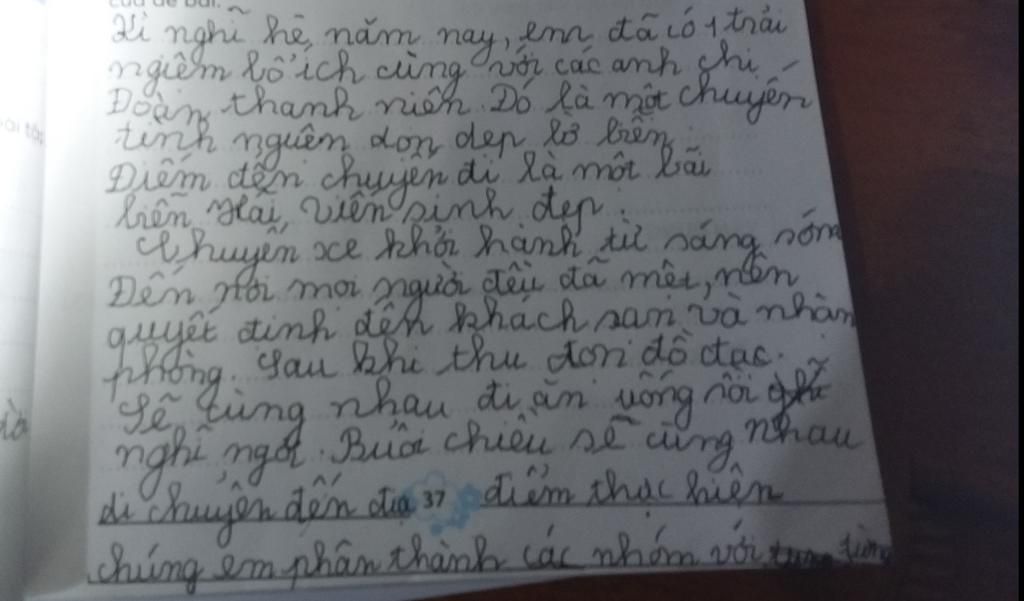 của đề bài.
Kì nghĩ hè, năm nay, em đã có 1 trải
ngiệm bổ ích cùng với các anh chi
Đoàn thanh niên. Đó là một chuyến
tình nguên dọn dẹp bờ biển.
Điểm đến chuyến đi là một bãi
biển Hải, Viên sinh đẹp.
Chuyến xe khởi hành từ sáng sớm
Đến nơi mọi người đều đã mệt, nên
quyết định đến khách sạn và nhận
phòng. Sau khi thu dọn đồ đạc.
Sẽ cùng nhau đi ăn uống rồi
nghỉ ngơi. Buổi chiều sẽ cùng nhau
di chuyển đến địa 37 điểm thực hiện
chúng em phân thành các nhóm với từng